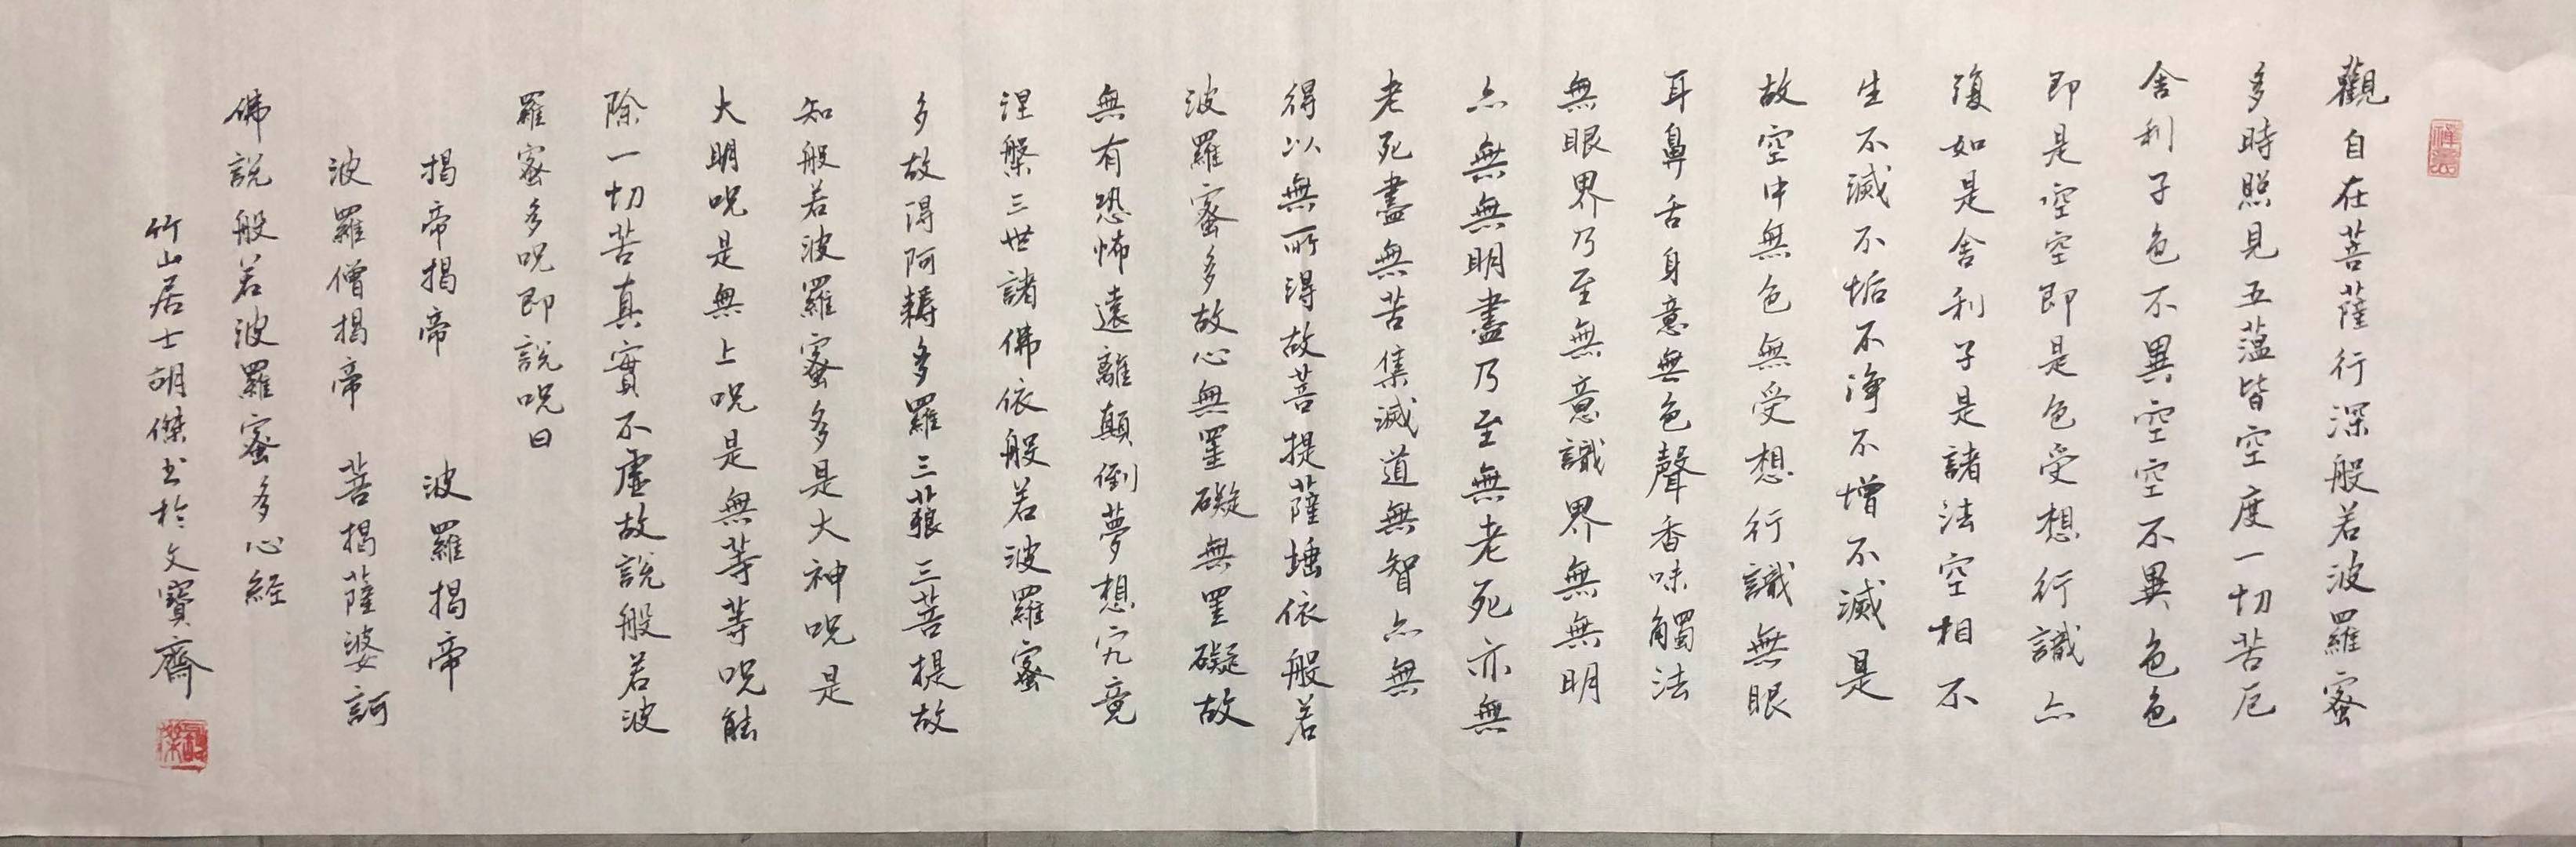 觀自在菩薩行深般若波羅蜜
多時照見五蕰皆空度一切苦厄
舎利子色不異空空不異色色
即是空空即是色受想行識亦
復如是舎利子是諸法空相不
生不滅不垢不淨不增不滅是
故空中無色無受想行識無眼
耳鼻舌身意無色聲香味觸法
無眼界乃至無意識界無無明
亦無無明盡乃至無老死亦無
老死盡無苦集滅道無智亦無
得以無所得故菩提薩埵依般若
波羅蜜多故心無罣礙無罣礙故
無有恐怖遠離顛倒夢想究竟
涅槃三世諸佛依般若波羅蜜
多故得阿耨多羅三藐三菩提故
知般若波羅蜜多是大神呪是
大明呪是無上呪是無等等呪能
除一切苦真實不虛故說般若波
羅蜜多呪即說呪曰
揭帝揭帝 波羅揭帝
波羅僧揭帝 菩提薩婆訶
佛說般若波羅蜜多心経
竹山居士胡傑书於文寶齋